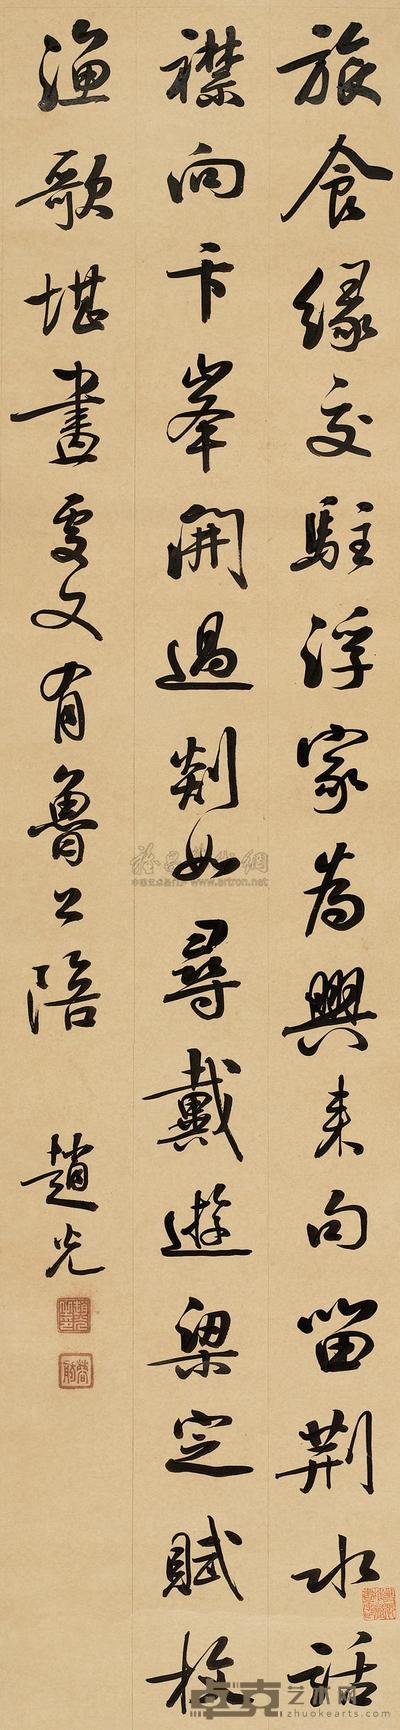 旅食緣交駐浮家為興来句留荆水話
襟向卞峯開過剡如尋戴遊梁定賦枚
漁歌堪畫處又有魯公陪
趙光
www.artron.net
卓克艺术网
zhuokearts.com